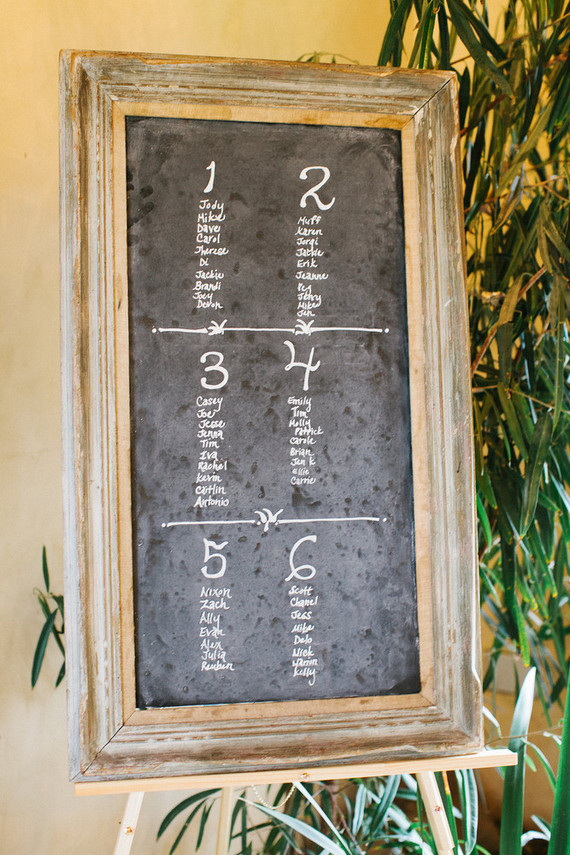 1
Jody
Mike
Dave
Carol
Therese
Di
Jackie
Brandi
Joey
Devon
2
Muff
Karen
Jorgi
Jackie
Erik
Jeanne
Peg
Jenny
Mike
Jen
3
Casey
Joe
Jesse
Jenna
Tim
Iva
Rachel
Kevin
Caitlin
Antonio
4
Emily
Tim
Molly
Patrick
Carole
Brian
Jen K
Ellie
Carrie
5
Nixon
Zach
Ally
Evan
Alex
Julia
Reuben
6
Scott
Chanel
Jess
Mike
Deb
Nick
Warren
Kelly